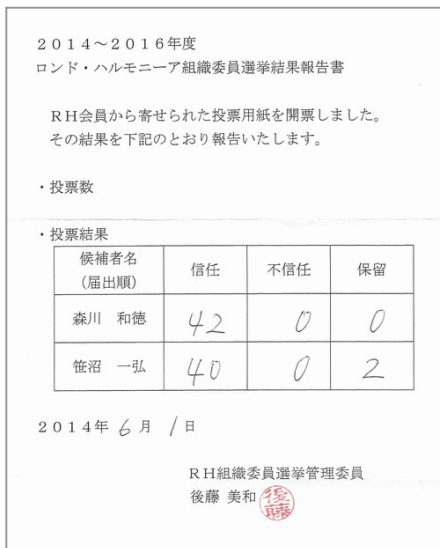 2014～2016年度
ロンド・ハルモニーア組織委員選挙結果報告書
RH会員から寄せられた投票用紙を開票しました。
その結果を下記のとおり報告いたします。
・投票数
・投票結果
候補者名
(届出順) 信任 不信任 保留
森川 和徳 42 0 0
笹沼 一弘 40 0 2
2014年 6月 1日
RH組織委員選挙管理委員
後藤 美和 後藤